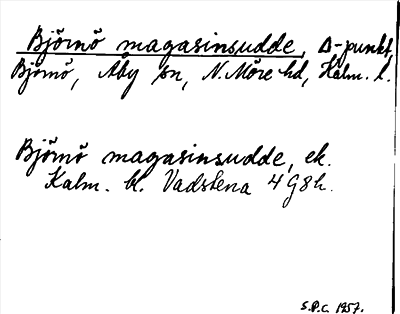 Björnö magasinsudde, Δ-punkt,
Björnö, Åby sn, N. Möre hd, Kalm. l.
Björnö magasinsudde, ek.
Kalm. bl. Vadstena 4G8h.
S.P.C. 1957.